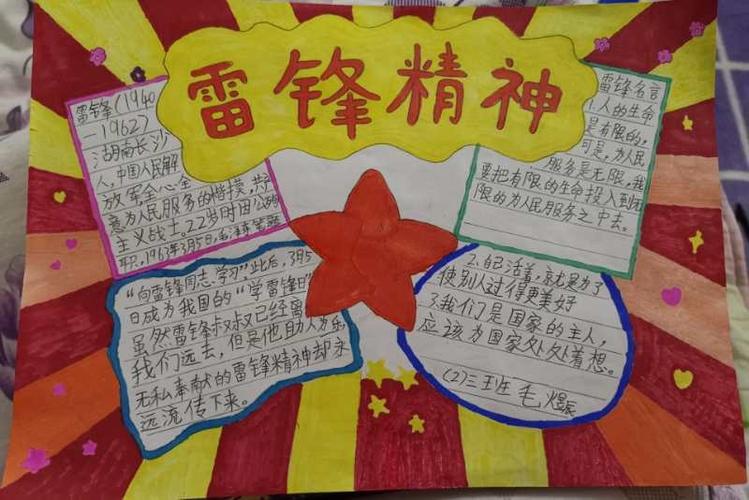 雷锋精神
雷锋(1940
-1962)
湖南长沙
人,中国人民解
放军全心全
意为人民服务的楷模,共产
主义战士。22岁时因公殉
职,1963年3月5日,毛泽东笔题
“向雷锋同志学习”此后,3月5
日成为我国的“学雷锋日”
虽然雷锋叔叔已经离
我们远去,但是他助人为乐,
无私奉献的雷锋精神却永
远流传下来。
雷锋名言
1.人的生命
是有限的,
可是,为人民
服务是无限,我
要把有限的生命投入到无
限的为人民服务之中去。
2.自己活着,就是为了
使别人过得更美好
3.我们是国家的主人,
应该为国家处处着想。
(2)三班 毛